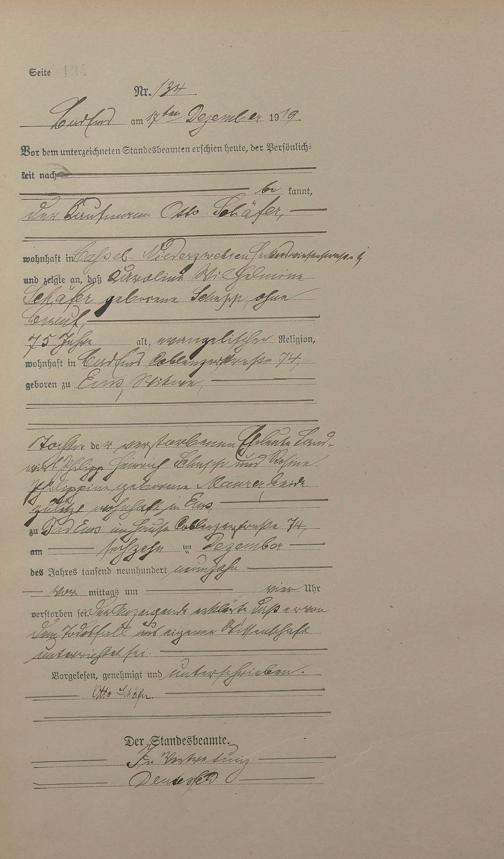 Seite
Nr. 134
Bad Ems am 17ten Dezember 1919.
Vor dem unterzeichneten Standesbeamten erschien heute, der Persönlich-
keit nach
be kannt,
der Kaufmann Otto Schäfer,
wohnhaft in Cassel Niederzwehren
und zeigte an, daß Karoline Wilhelmine
Schäfer geborene ohne
Beruf,
75 Jahre alt, evangelischer Religion,
wohnhaft in Bad Ems Coblenzerstraße 74,
geboren zu Ems, Witwe,
Tochter der verstorbenen Eheleute Land-
wirt Philipp Heinrich und
Philippine geborene Maurer, beide
zuletzt wohnhaft in Ems,
zu Bad Ems im Hause Coblenzerstraße 74,
am sechzehn ten Dezember
des Jahres tausend neunhundert neunzehn
vor mittags um vier Uhr
verstorben sei. Der Anzeigende erklärte daß er von
dem Todesfall aus eigener Wissenschaft
unterrichtet sei.
Vorgelesen, genehmigt und unterschrieben.
Otto Schäfer
Der Standesbeamte.
In Vertretung